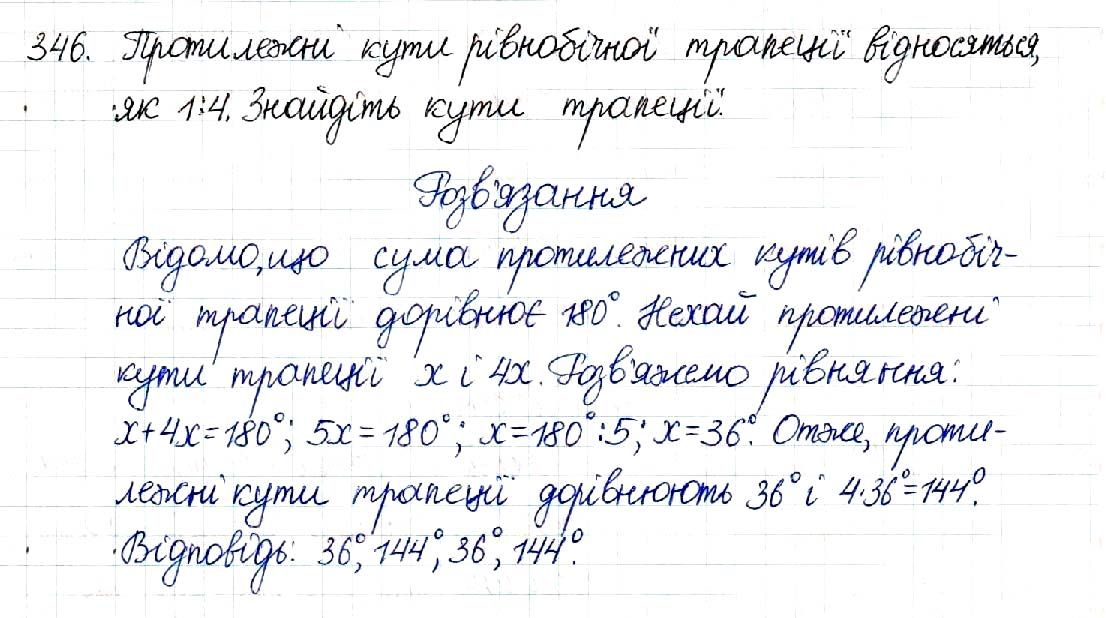 346. Протилежні кути рівнобічної трапеції відносяться,
як 1:4. Знайдіть кути трапеції.
Розв'язання
Відомо, що сума протилежних кутів рівнобіч-
ної трапеції дорівнює 180°. Нехай протилежні
кути трапеції x і 4x. Розв'яжемо рівняння:
x+4x=180°; 5x=180°; x=180°:5; x=36°. Отже, проти-
лежні кути трапеції дорівнюють 36° і 4·36°=144°.
Відповідь: 36°, 144°, 36°, 144°.